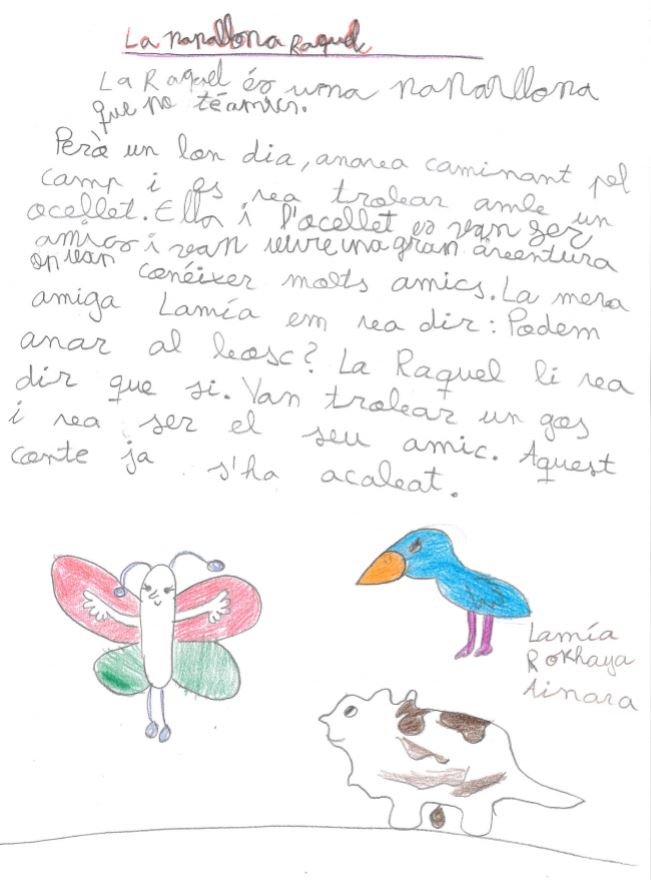 La papallona Raquel
La Raquel és una papallona
que no té amics.
Però un bon dia, anava caminant pel
camp i es va trobar amb un
ocellet. Ella i l'ocellet es van ser
amics i van viure una gran aventura
on van conéixer molts amics. La meva
amiga Lamía em va dir: Podem
anar al bosc? La Raquel li va
dir que si. Van trobar un gos
i va ser el seu amic. Aquest
conte ja s'ha acabat.
Lamía
Rokhaya
Ainara